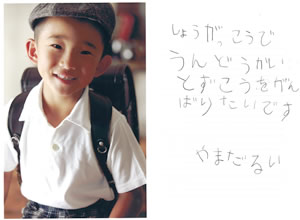 しょうがっこうで
うんどうかい
とずこうをがん
ばりたいです
やまだるい